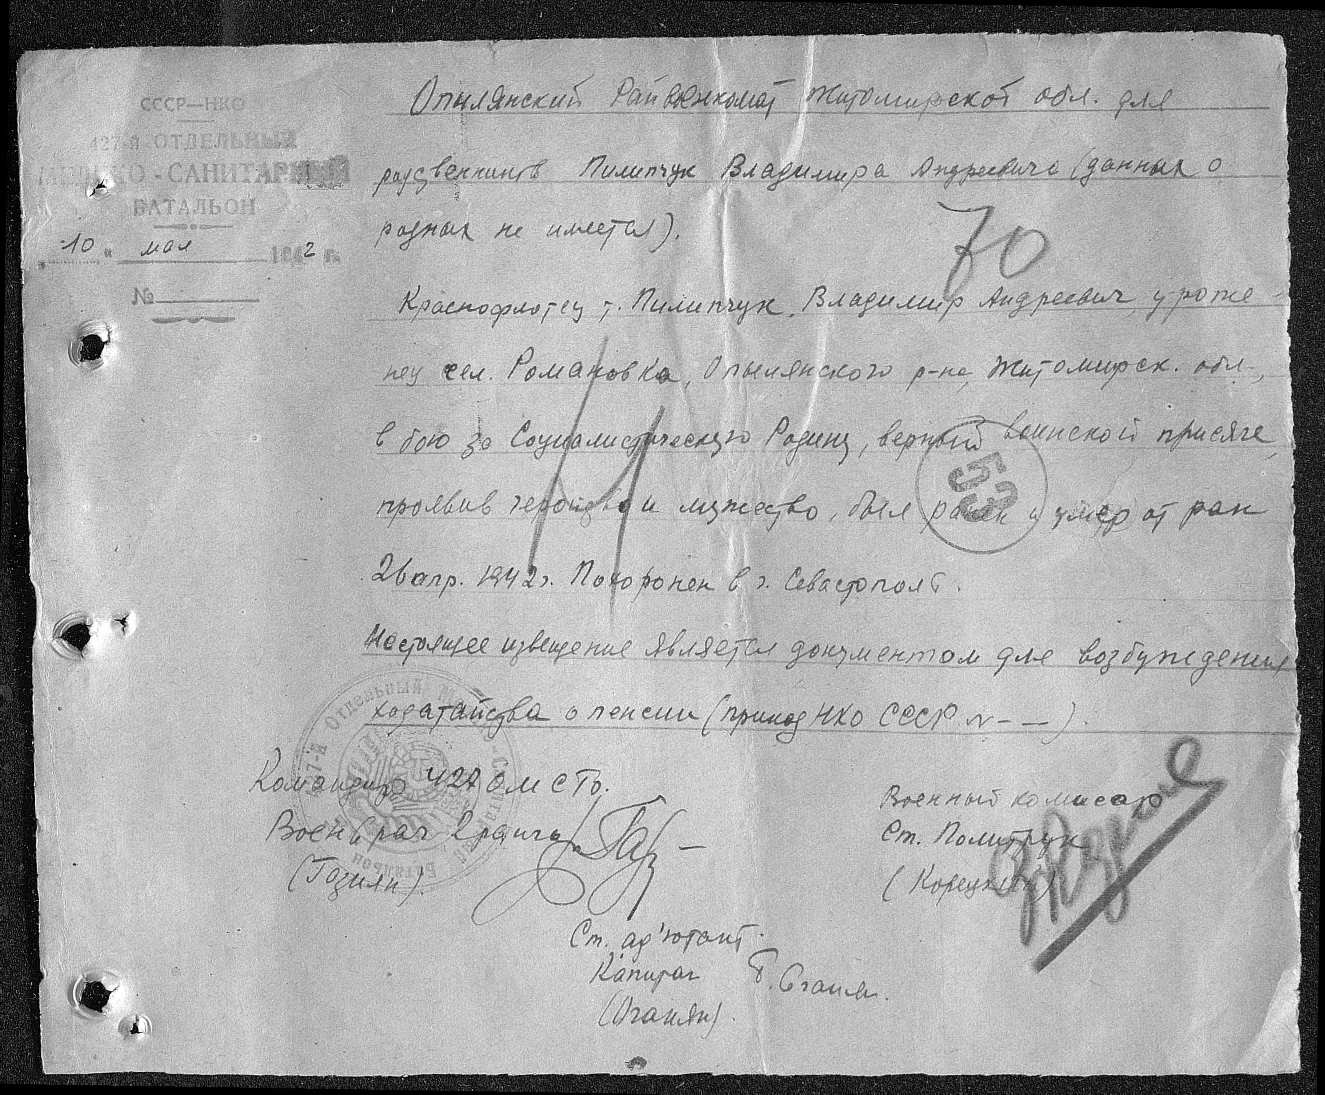 СССР—НКО
427-й ОТДЕЛЬНЫЙ
МЕДИКО-САНИТАРНЫЙ
БАТАЛЬОН
"10" мая 1942 г.
№
Опылянский Райвоенкомат Житомирской обл. для
родственников Пилипчук Владимира Андреевича (данных о
родных не имеется).
70
Краснофлотец т. Пилипчук, Владимир Андреевич, уроже-
нец сел. Романовка, Опылянского р-на, Житомирск. обл.,
в бою за Социалистическую Родину, верный воинской присяге,
проявив геройство и мужество, был ранен и умер от ран
53
26 апр. 1942 г. Похоронен в г. Севастополь.
Настоящее извещение является документом для возбуждения
ходатайства о пенсии (приказ НКО СССР № — —).
427-й Отдельный Медико-Санитарный Батальон
Командир 427 ОМСБ.
Военврач 2 ранга
(Гозиян).
Военный комиссар
Ст. Политрук
(Корецкий)
Ст. ад'ютант
Капитан
(Оганян).